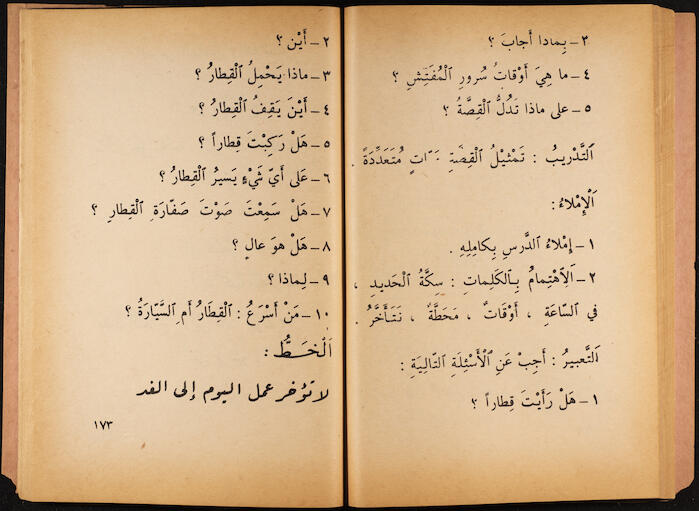 ٣ ـ بِماذا أَجابَ ؟
٤ ـ ما هِيَ أَوْقاتُ سُرورِ ٱلْمُفَتِّشِ ؟
٥ ـ على ماذا تَدُلُّ ٱلْقِصَّةُ ؟
ٱلتَّدْريبُ : تَمْثيلُ ٱلْقِصَّةِ مَرّاتٍ مُتَعَدِّدَةً .
ٱلْإِمْلاءُ :
١ ـ إِمْلاءُ ٱلدَّرسِ بِكامِلِهِ .
٢ ـ ٱلْاهْتِمامُ بِٱلْكَلِماتِ : سِكَّةُ ٱلْحَديدِ ،
في ٱلسّاعَةِ ، أَوْقاتٌ ، مَحَطَّةٌ ، نَتَأَخَّرُ .
ٱلتَّعبيرُ : أَجِبْ عَنِ ٱلْأَسْئِلَةِ ٱلتّالِيَةِ :
١ ـ هَلْ رَأَيْتَ قِطاراً ؟
٢ ـ أَيْن ؟
٣ ـ ماذا يَحْمِلُ ٱلْقِطارُ ؟
٤ ـ أَيْنَ يَقِفُ ٱلْقِطارُ ؟
٥ ـ هَلْ رَكِبْتَ قِطاراً ؟
٦ ـ عَلى أَيِّ شَيْءٍ يَسيرُ ٱلْقِطارُ ؟
٧ ـ هَلْ سَمِعْتَ صَوْتَ صَفّارَةِ ٱلْقِطارِ ؟
٨ ـ هَلْ هوَ عالٍ ؟
٩ ـ لِماذا ؟
١٠ ـ مَنْ أَسْرَعُ : ٱلْقِطَارُ أَمِ ٱلسَّيّارَةُ ؟
ٱلْخَطُّ :
لا تؤخر عمل اليوم إلى الغد
١٧٣